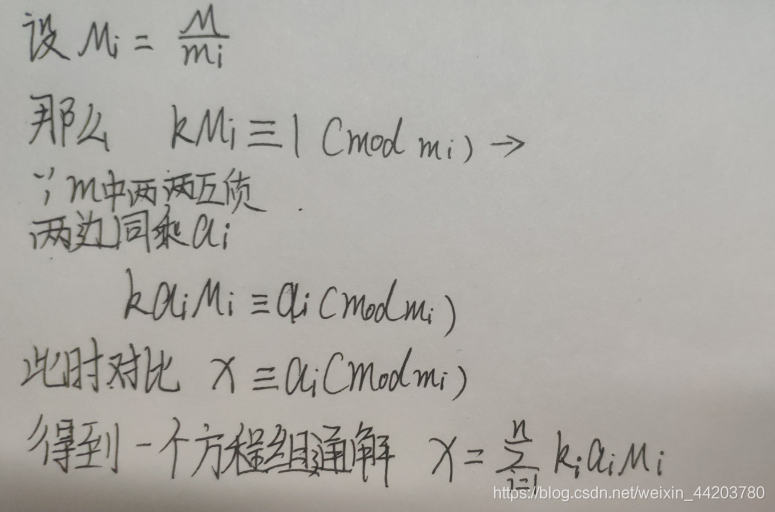 设 Mi = M/mi
那么 kMi ≡ 1 (mod mi) →
∵ m中两两互质
两边同乘ai
kaiMi ≡ ai (mod mi)
此时对比 x ≡ ai (mod mi)
得到一个方程组通解 x = ∑_{i=1}^{n} kiaiMi
https://blog.csdn.net/weixin_44203780